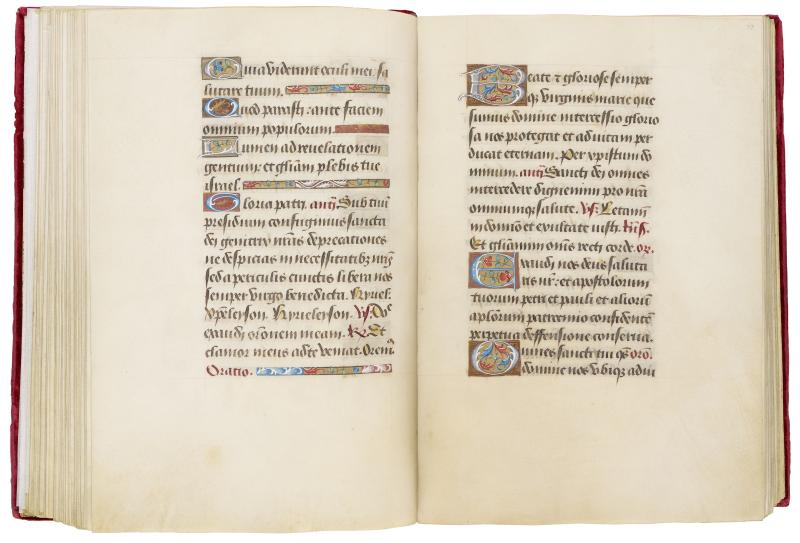 Quia viderunt oculi mei sa
lutare tuum.
Quod parasti: ante faciem
omnium populorum.
Lumen ad revelationem
gentium: et gliam plebis tue
israel.
Gloria patri. antī. Sub tuū
presidium confugimus sancta
dei genitrix nrās deprecationes
ne despicias in necessitatibꝫ nrīs
sed a periculis cunctis libera nos
semper virgo benedicta. Kyriel.
Xpēleyson. Kyrieleyson. Vs. Dn̄e
exaudi orōnem meam. R. Et
clamor meus ad te veniat. Orem⁹
Oratio.
Beate ⁊ gloriose semper
qꝫ virginis marie que
sumus domine intercessio glorio
sa nos protegat et ad vitam per
ducat eternam. Per xp̄istum do
minum. antī. Sancti dei omnes
intercedere dignemini pro nrā
omniumqꝫ salute. Vs. Letamī
in domino et exultate iusti. Rus.
Et gliamini om̄s recti corde. or.
Exaudi nos deus saluta
ris nr̄: et apostolorum
tuorum petri et pauli et alioru
aplorum patrocinio confidentē
perpetua deffensione conserua.
Omnes sancti tui qs̄ oro.
domine nos vbiqꝫ adiu